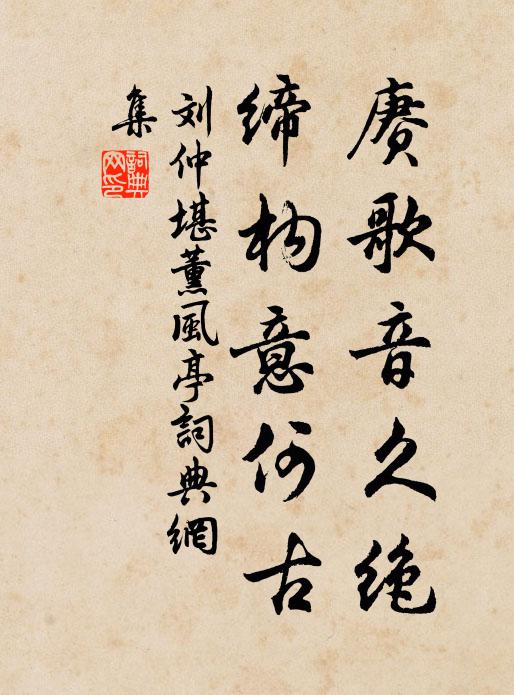 赓歌音久绝
缔构意何古
刘仲堪薰風亭詞典網
集
詞典網印